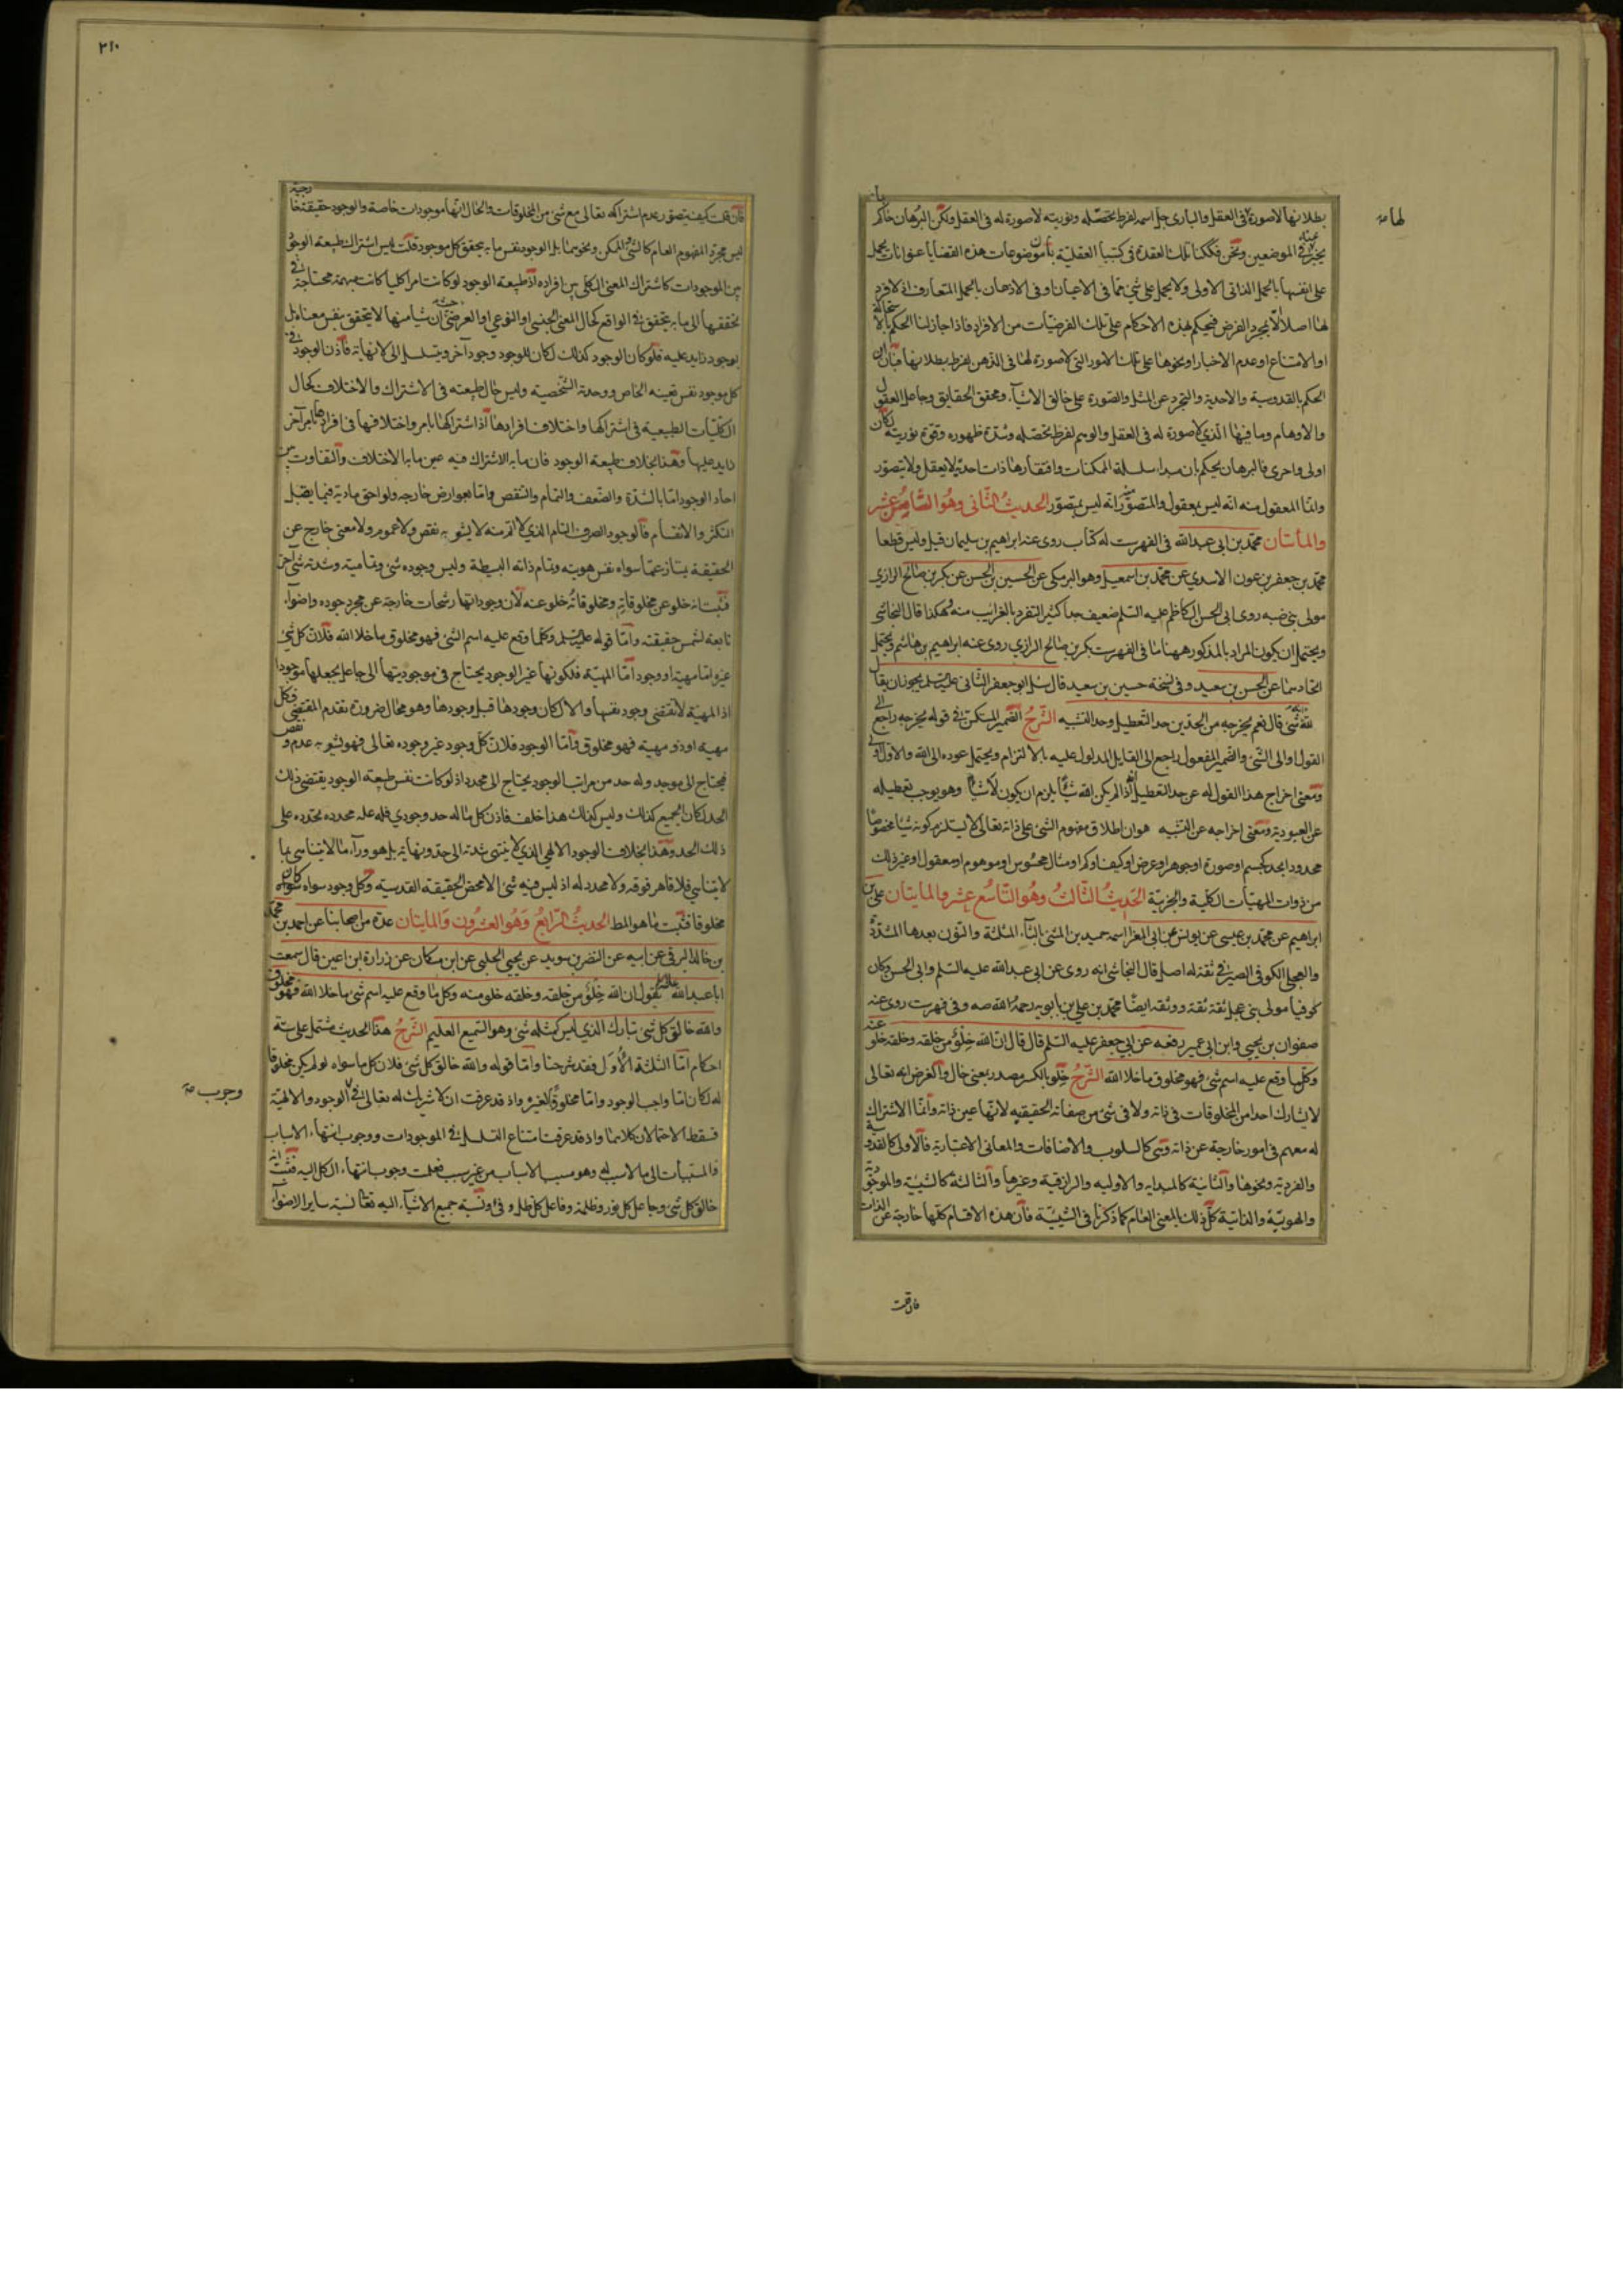 بطلانها لاصورة فى العقل والبارى جل اسمه لفرط تحصّله ونوريته لاصورة له فى العقل ولكن البرهان حاكم بان
لها صه
يخبر عنه فى الموضعين ونحن فككنا تلك العقدة فى كتبنا العقليّة بأن موضوعات هذه القضايا عنوانات يحمل
على انفسها بالحمل الذاتى الاولى ولا يحمل على شئ مما فى الاعيان او فى الاذهان بالحمل المتعارف اذ لا فرد
لها اصلا الّا بمجرد الفرض فيحكم بهذه الاحكام على تلك الفرضيّات من الافراد فاذا جاز لنا الحكم بالاستحالة
او الامتناع او عدم الاخبار او نحوها على تلك الامور التى لاصورة لها فى الذهن لفرط بطلانها فبان
الحكم بالقدوسية والاحدية والتجرد عن المثل والصورة على خالق الاشيآء ومحقق الحقايق وجاعل العقول
والاوهام وما فيها الّذى لاصورة له فى العقل والوهم لفرط تحصّله وشدة ظهوره وقوة نوريته لكان
اولى واحرى فالبرهان يحكم بان مبدا سلسلة الممكنات وافتقارها ذات احديّة لا يعقل ولا يتصوّر
وانما المعقول منه انه ليس بمعقول والمتصوّر منه انه ليس بمتصوّر الحديث الثّانى وهُو الثّامِن عشر
والماتان محمّد بن ابى عبدالله فى الفهرست له كتاب روى عنه ابراهيم بن سليمان قيل وليس قطعا
محمّد بن جعفر بن عون الاسدي عن محمّد بن اسمعيل وهو البرمكى عن الحسين بن الحسن عن بكر بن صالح الرازي
مولى بنى ضبه روى ابى الحسن الكاظم عليه السّلم ضعيف جدا كثير التفرد بالغرايب منه هكذا قال النجاشى
ويحتمل ان يكون المراد بالمذكور ههنا ما فى الفهرست بكر بن صالح الرازي روى عنه ابراهيم بن هاشم ويحتمل
اتحادهما عن الحسن بن سعيد وفى نسخة حسين بن سعيد قال سئل ابو جعفر الثّانى عليه السّلم يجوز ان يقال
لله انه شئ قال نعم يخرجه من الحدين حد التّعطيل وحد التشبيه الشّرحُ الضّمير المستكن فى قوله يخرجه راجع الى
القول او الى الشئ والضمير المفعول راجع الى القايل المدلول عليه بالالتزام ويحتمل عوده الى الله والاول اولى
ومعنى اخراج هذا القول له عن حد التعطيل انه اذا لم يكن الله شيئا يلزم ان يكون لا شيئا وهو يوجب تعطيله
عن العبودية ومعنى اخراجه عن التشبيه هو ان اطلاق مفهوم الشئ على ذاته تعالى لا يستلزم كونه شيئا مخصوصا
محدودا بحد كجسم او صورة او جوهر او عرض او كيف او كم او مثال محسوس او موهوم او معقول او غير ذلك
من ذوات المهيّات الكليّة والجزئيّة الحَدِيثُ الثّالثُ وهُو التّاسُع عشر والمايتان على بن
ابراهيم عن محمّد بن عيسى عن يونس عن ابى المغرا اسمه حميد بن المثنى بالثآء المثلثة والنّون بعدها المشدّدة
والعجلى الكوفى الصيرفى ثقة له اصل قال النجاشى انه روى عن ابى عبدالله عليه السّلم وابى الحسن وكان
كوفيا مولى بنى عجل ثقة ثقة ووثقه ايضًا محمّد بن على بن بابويه رحمهُ الله صه وفى فهرست روى عنه
صفوان بن يحيى وابن ابى عمير رفعه عن ابى جعفر عليه السّلم قال قال انّ الله خِلْوٌ من خلقه وخلقه خلو عنه
وكلّ ما وقع عليه اسم شئ فهو مخلوق ما خلا الله الشّرحُ خِلو بالكسر مصدر بمعنى خال والغرض انه تعالى
لا يشارك احدا من المخلوقات فى ذاته ولا فى شئ من صفاته الحقيقيّه لانّها عين ذاته وانّما الاشتراك
له معهم فى امور خارجة عن ذاته وهى كالسلوب والاضافات والمعانى الاعتبارية فالاولى كالقدوسية
والفردية ونحوها والثانية كالمبدايه والاوليه والرازقية وغيرها والثالثة كالشيئية والموجودية
والهويّة والذاتية كلّ ذلك بالمعنى العام كما ذكرنا فى الشّيئيّة فان هذه الاقسام كلّها خارجة عن الذات
فان قلت
٢١٠
فان قلت كيف يتصور عدم اشتراكه تعالى مع شئ من المخلوقات والحال انّها موجودات خاصة والوجود حقيقة خارجية
ليس مجرد المفهوم العام كالشئ والممكن ونحوهما بل الوجود نفس ما به يتحقق كل موجود قلت ليس اشتراك طبيعة الوجود
بين الموجودات كاشتراك المعنى الكلى بين افراده اذ طبيعة الوجود لو كانت امرا كليا كانت مبهمة محتاجة فى
تحققها الى ما به يتحقق فى الواقع كحال المعنى الجنسى او النوعى او العرضى حيث ان شيئا منها لا يتحقق بنفس معناه بل
بوجود زايد عليه فلو كان الوجود كذلك لكان للوجود وجود آخر ويتسلسل الى لا نهاية فاذن الوجود فى
كل موجود نفس تعينه الخاص ووحدته الشّخصية وليس حال طبيعته فى الاشتراك والاختلاف كحال
الكليّات الطبيعية فى اشتراكها واختلاف افرادها اذ اشتراكها بامر واختلافها فى افرادها بامر آخر
زايد عليها وهذا بخلاف طبيعة الوجود فان ما به الاشتراك فيه عين ما به الاختلاف والتفاوت بين
احاد الوجود اما بالشدّة والضّعف والتمام والنقص واما بعوارض خارجه ولواحق مادية فيما يقبل
التكثر والانقسام فالوجود الصرف التام الذي لا اتم منه لا يشوبه نقص ولا عموم ولا معنى خارج عن
الحقيقة يمتاز عمّا سواه بنفس هويته وتمام ذاته البسيطة وليس وجوده شئ وتماميته وشدته شئ آخر
فثبت انه خلو عن مخلوقاتِه ومخلوقاتُه خلو عنه لان وجوداتها رشحات خارجة عن مجرد جوده واضوآء
تابعة لشمس حقيقته وامّا قوله عليه السّلم وكلما وقع عليه اسم الشئ فهو مخلوق ما خلا الله فلانّ كل شئ
غيره اما مهية او وجود امّا المهيّة فلكونها غير الوجود يحتاج فى موجوديتها الى جاعل يجعلها موجودا
اذ المهيّة لا تقتضى وجود نفسها والا لكان وجودها قبل وجودها وهو محال ضرورة تقدم المقتضى فكل
مهية او ذو مهية فهو مخلوق وامّا الوجود فلانّ كل وجود غير وجوده تعالى فهو يشوبه عدم ونقص
فيحتاج الى موجد وله حد من مراتب الوجود يحتاج الى محدد اذ لو كانت نفس طبيعة الوجود يقتضى ذلك
الحد لكان الجميع كذلك وليس كذلك هذا خلف فاذن كل ما له حد وجودي فله علة محددة تحدده على
ذلك الحد وهذا بخلاف الوجود الالهى الذي لا ينتهى شدته الى حدّ ونهاية بل هو ورآء ما لا يتناهى بما
لا يتناهى فلا قاهر فوقه ولا محدد له اذ ليس فيه شئ الا محض الحقيقة القدسية وكل وجود سواه كان
مخلوقا فثبت ما هو المط الحَديثُ الرّابعُ وَهُو العشرُون وَالمايتان عدّة من اصحابنا عن احمد بن محمّد
بن خالد البرقى عن ابيه عن النضر بن سويد عن يحيى الحلبى عن ابن مسكان عن زرارة ابن اعين قال سمعت
ابا عبدالله عليه السلم يقول ان الله خِلْوٌ من خلقه وخلقه خلو منه وكل ما وقع عليه اسم شئ ما خلا الله فهو مخلوق
والله خالق كل شئ تبارك الذي ليس كمثله شئ وهو السّميع العليم الشّرحُ هذا الحديث مشتمل على ستة
احكام امّا الثلثة الأوَل فقد شرحنا وامّا قوله والله خالق كل شئ فلان كل ما سواه لو لم يكن مخلوقا
له لكان امّا واجب الوجود وامّا مخلوقًا لغيره واذ قد عرفت ان لا شريك له تعالى فى وجوب الوجود والالهيّة
وجوب صه
فسقط الاحتمالان كلاهما واذ قد عرفت امتناع التسلسل فى الموجودات ووجوب انتهاء الاسباب
والمسبّبات الى ما لا سبب له وهو مسبب الاسباب من غير سبب فعلمت وجوب انتهاء الكل اليه فثبت انه
خالق كل شئ وجاعل كل نور وظلمة وفاعل كل ظل وفئ ونسبة جميع الاشيآء اليه تعالى كنسبة ساير الاضوآء